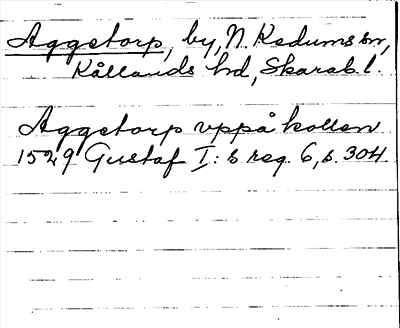 Aggetorp, by, N. Kedums sn,
Kållands hd, Skarab. l.
Aggetorp vppå kollen
1529 Gustaf I: s reg. 6, s. 304.